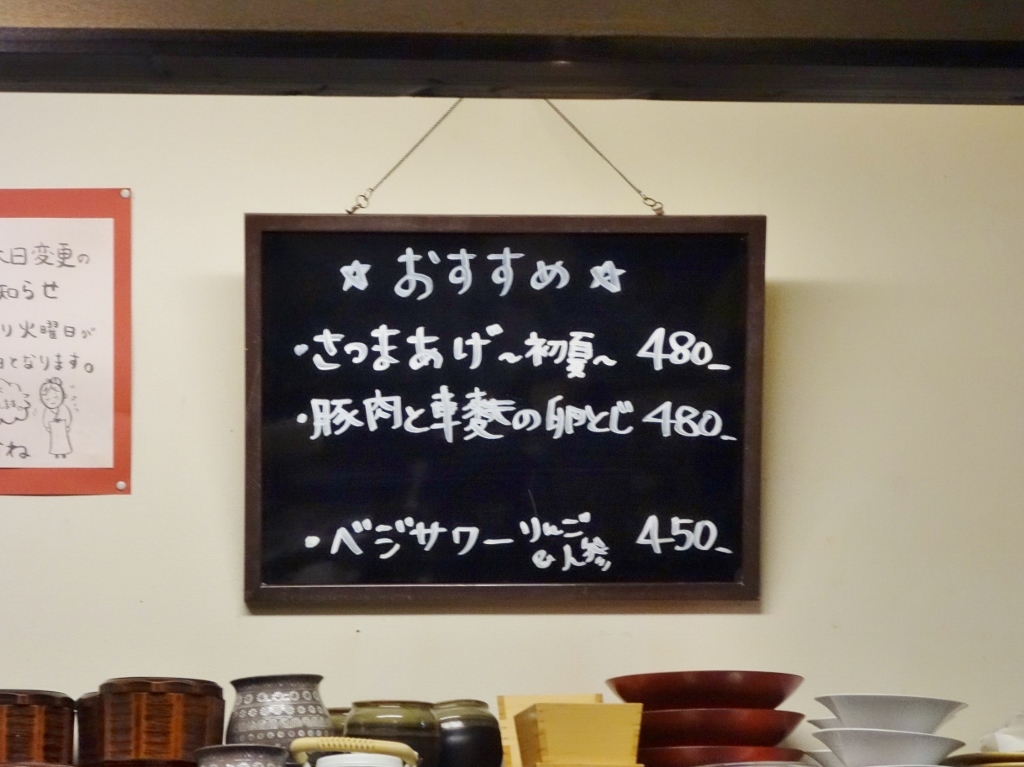 日変更の
知らせ
り火曜日が
となります。
ね
☆ おすすめ ☆
・さつまあげ～初夏～ 480_
・豚肉と車麩の卵とじ 480_
・ベジサワー りんご 450_
&人参